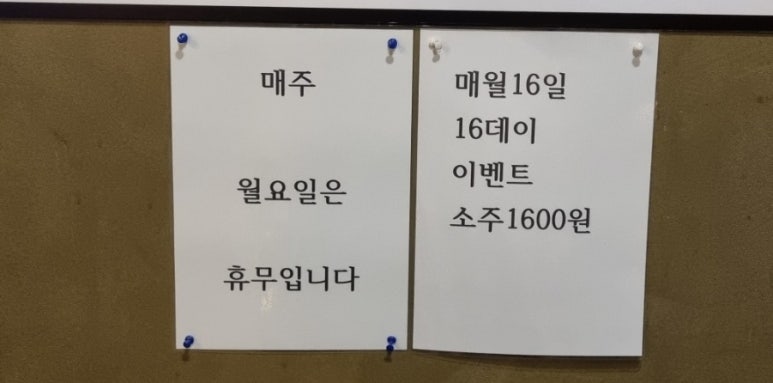 매주
월요일은
휴무입니다
매월16일
16데이
이벤트
소주1600원